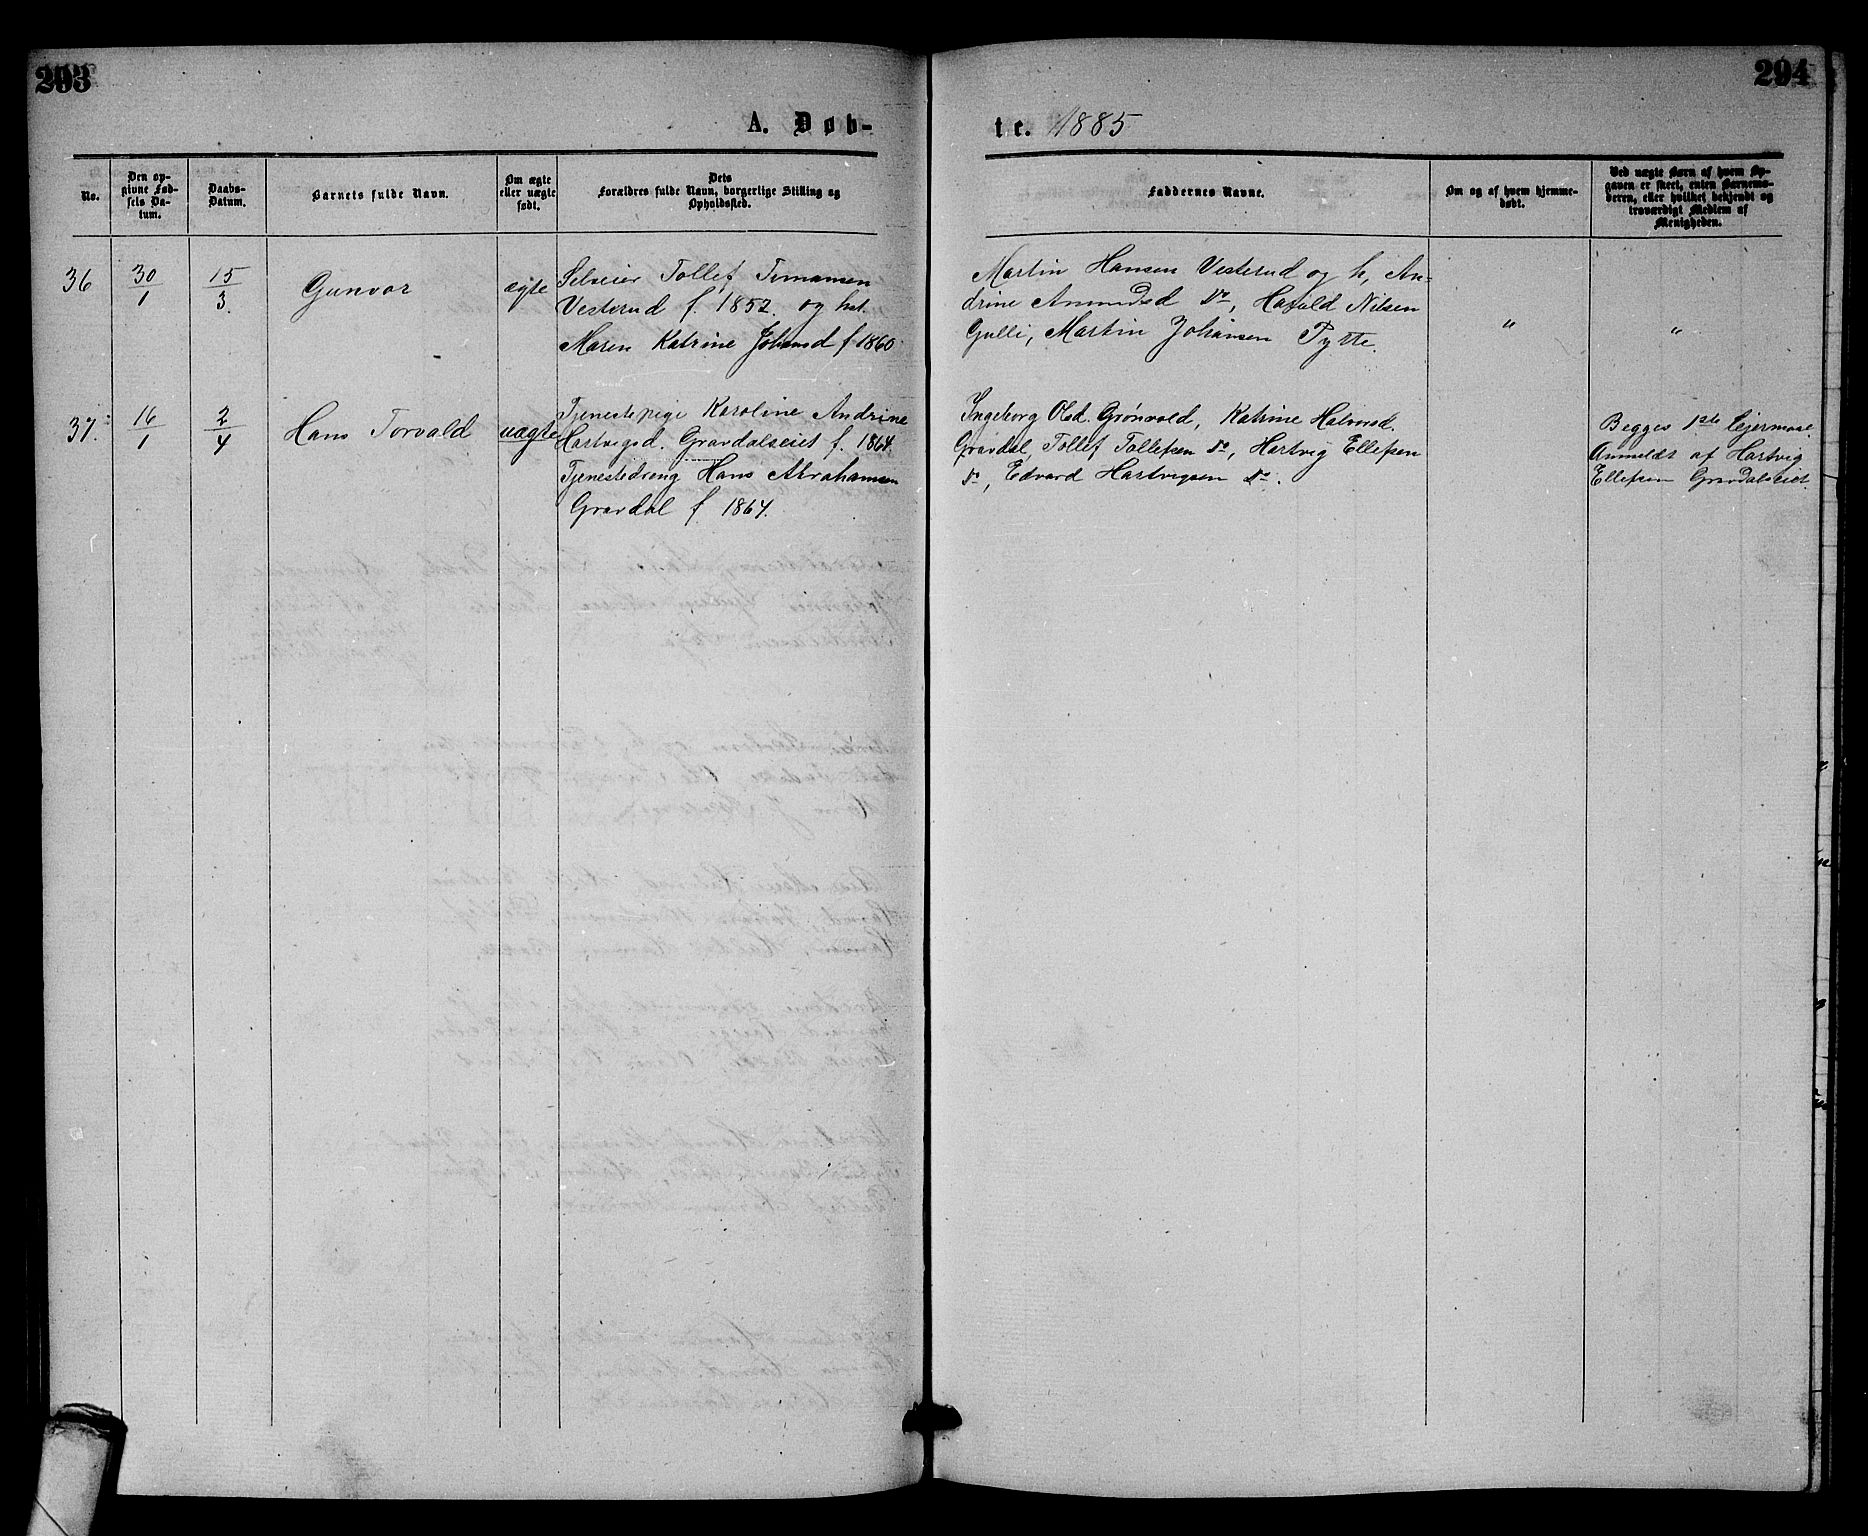 293
294
A. Døb-
te. 1885
No.
Den op-
givne Fød-
sels Da-
tum.
Daabs-
Datum.
Barnets fulde Navn.
Om ægte
eller uægte
født.
Dets
Forældres fulde Navn, borgerlige Stilling og
Opholdssted.
Faddernes Navne.
Om og af hvem hjemme-
døbt.
Ved uægte Børn af hvem Op-
gaven er skeet, enten Barnemo-
deren, eller hvilket bekjendt og
troværdigt Medlem af
Menigheden.
36
30/1
15/3.
Gunvor
ægte
Selveier Tollef
Vesterud f. 1852. og hst.
Maren Katrine Johansd f 1860
Martin Hansen Vesterud og h, An-
drine Amundsd do, Harald Nilsen
Gulli, Martin Johansen Pytte.
"
"
37.
16/1
2/4
Hans Torvald
uægte
Tjenestepige Karoline Andrine
Hartvigsd. Gravdalseiet f. 1864.
Tjenestedreng Hans Abrahamsen
Gravdal f. 1864.
Ingeborg Olsd. Grønvold, Katrine Halvorsd.
Gravdal, Tollef Tollefsen do, Hartvig Ellefsen
do, Edvard Hartvigsen do.
Begges 1ste Lejermaal
Anmeldt af Hartvig
Ellefsen Gravdalseiet.